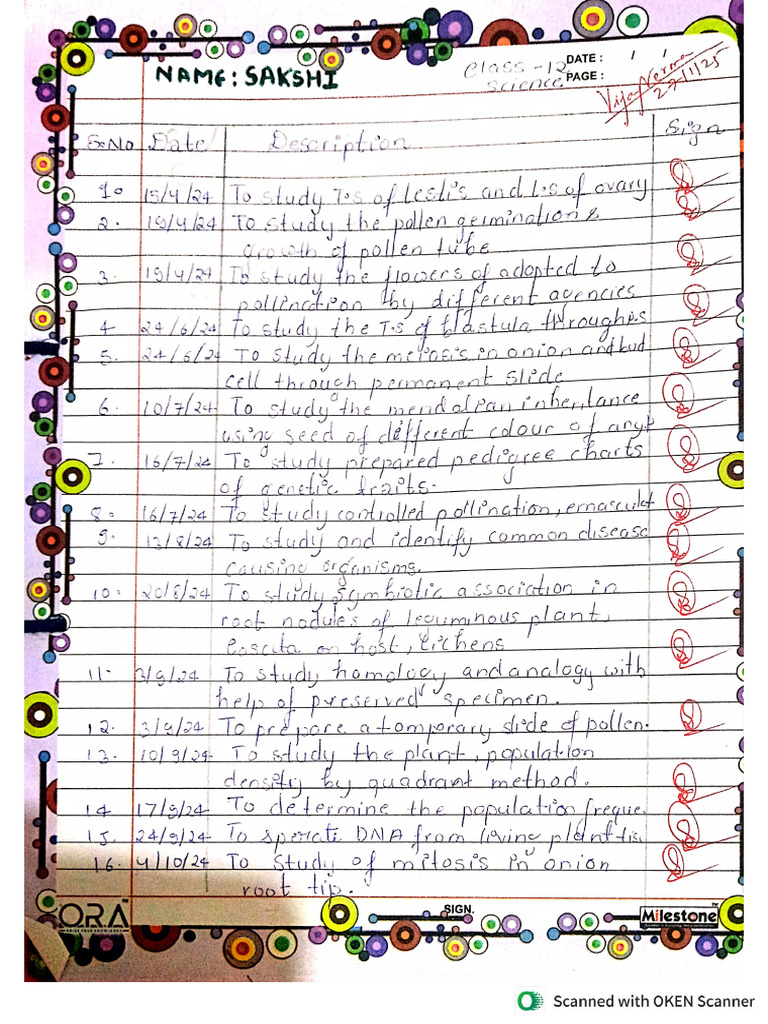 NAME: SAKSHI
Class - 12
Science
DATE : / /
PAGE :
Vijay Verma
27/11/25
Sr.No Date Description Sign
1. 15/4/24 To study T.S of testis and L.S of ovary
2. 19/4/24 To study the pollen germination &
growth of pollen tube
3. 19/4/24 To study the flowers of adopted to
pollination by different agencies
4 24/6/24 To study the T.S of blastula through
5. 24/6/24 To study the meiosis in onion and bud
cell through permanent slide
6. 10/7/24 To study the mendalian inheritance
using seed of different colour of any
7. 16/7/24 To study prepared pedigree charts
of genetic traits.
8. 16/7/24 To study controlled pollination, emasculat
9. 13/8/24 To study and identify common disease
causing organisms.
10. 20/8/24 To study symbiotic association in
root nodules of leguminous plant,
on host, lichens
11. 3/9/24 To study homology and analogy with
help of preserved specimen.
12. 3/9/24 To prepare a tomporary slide of pollen.
13. 10/9/24 To study the plant, population
density by quadrant method.
14 17/9/24 To determine the population freque
15. 24/9/24 To sperate DNA from living plant tis
16. 4/10/24 To study of mitosis in onion
root tip.
SIGN.
QRA
Milestone
Scanned with OKEN Scanner